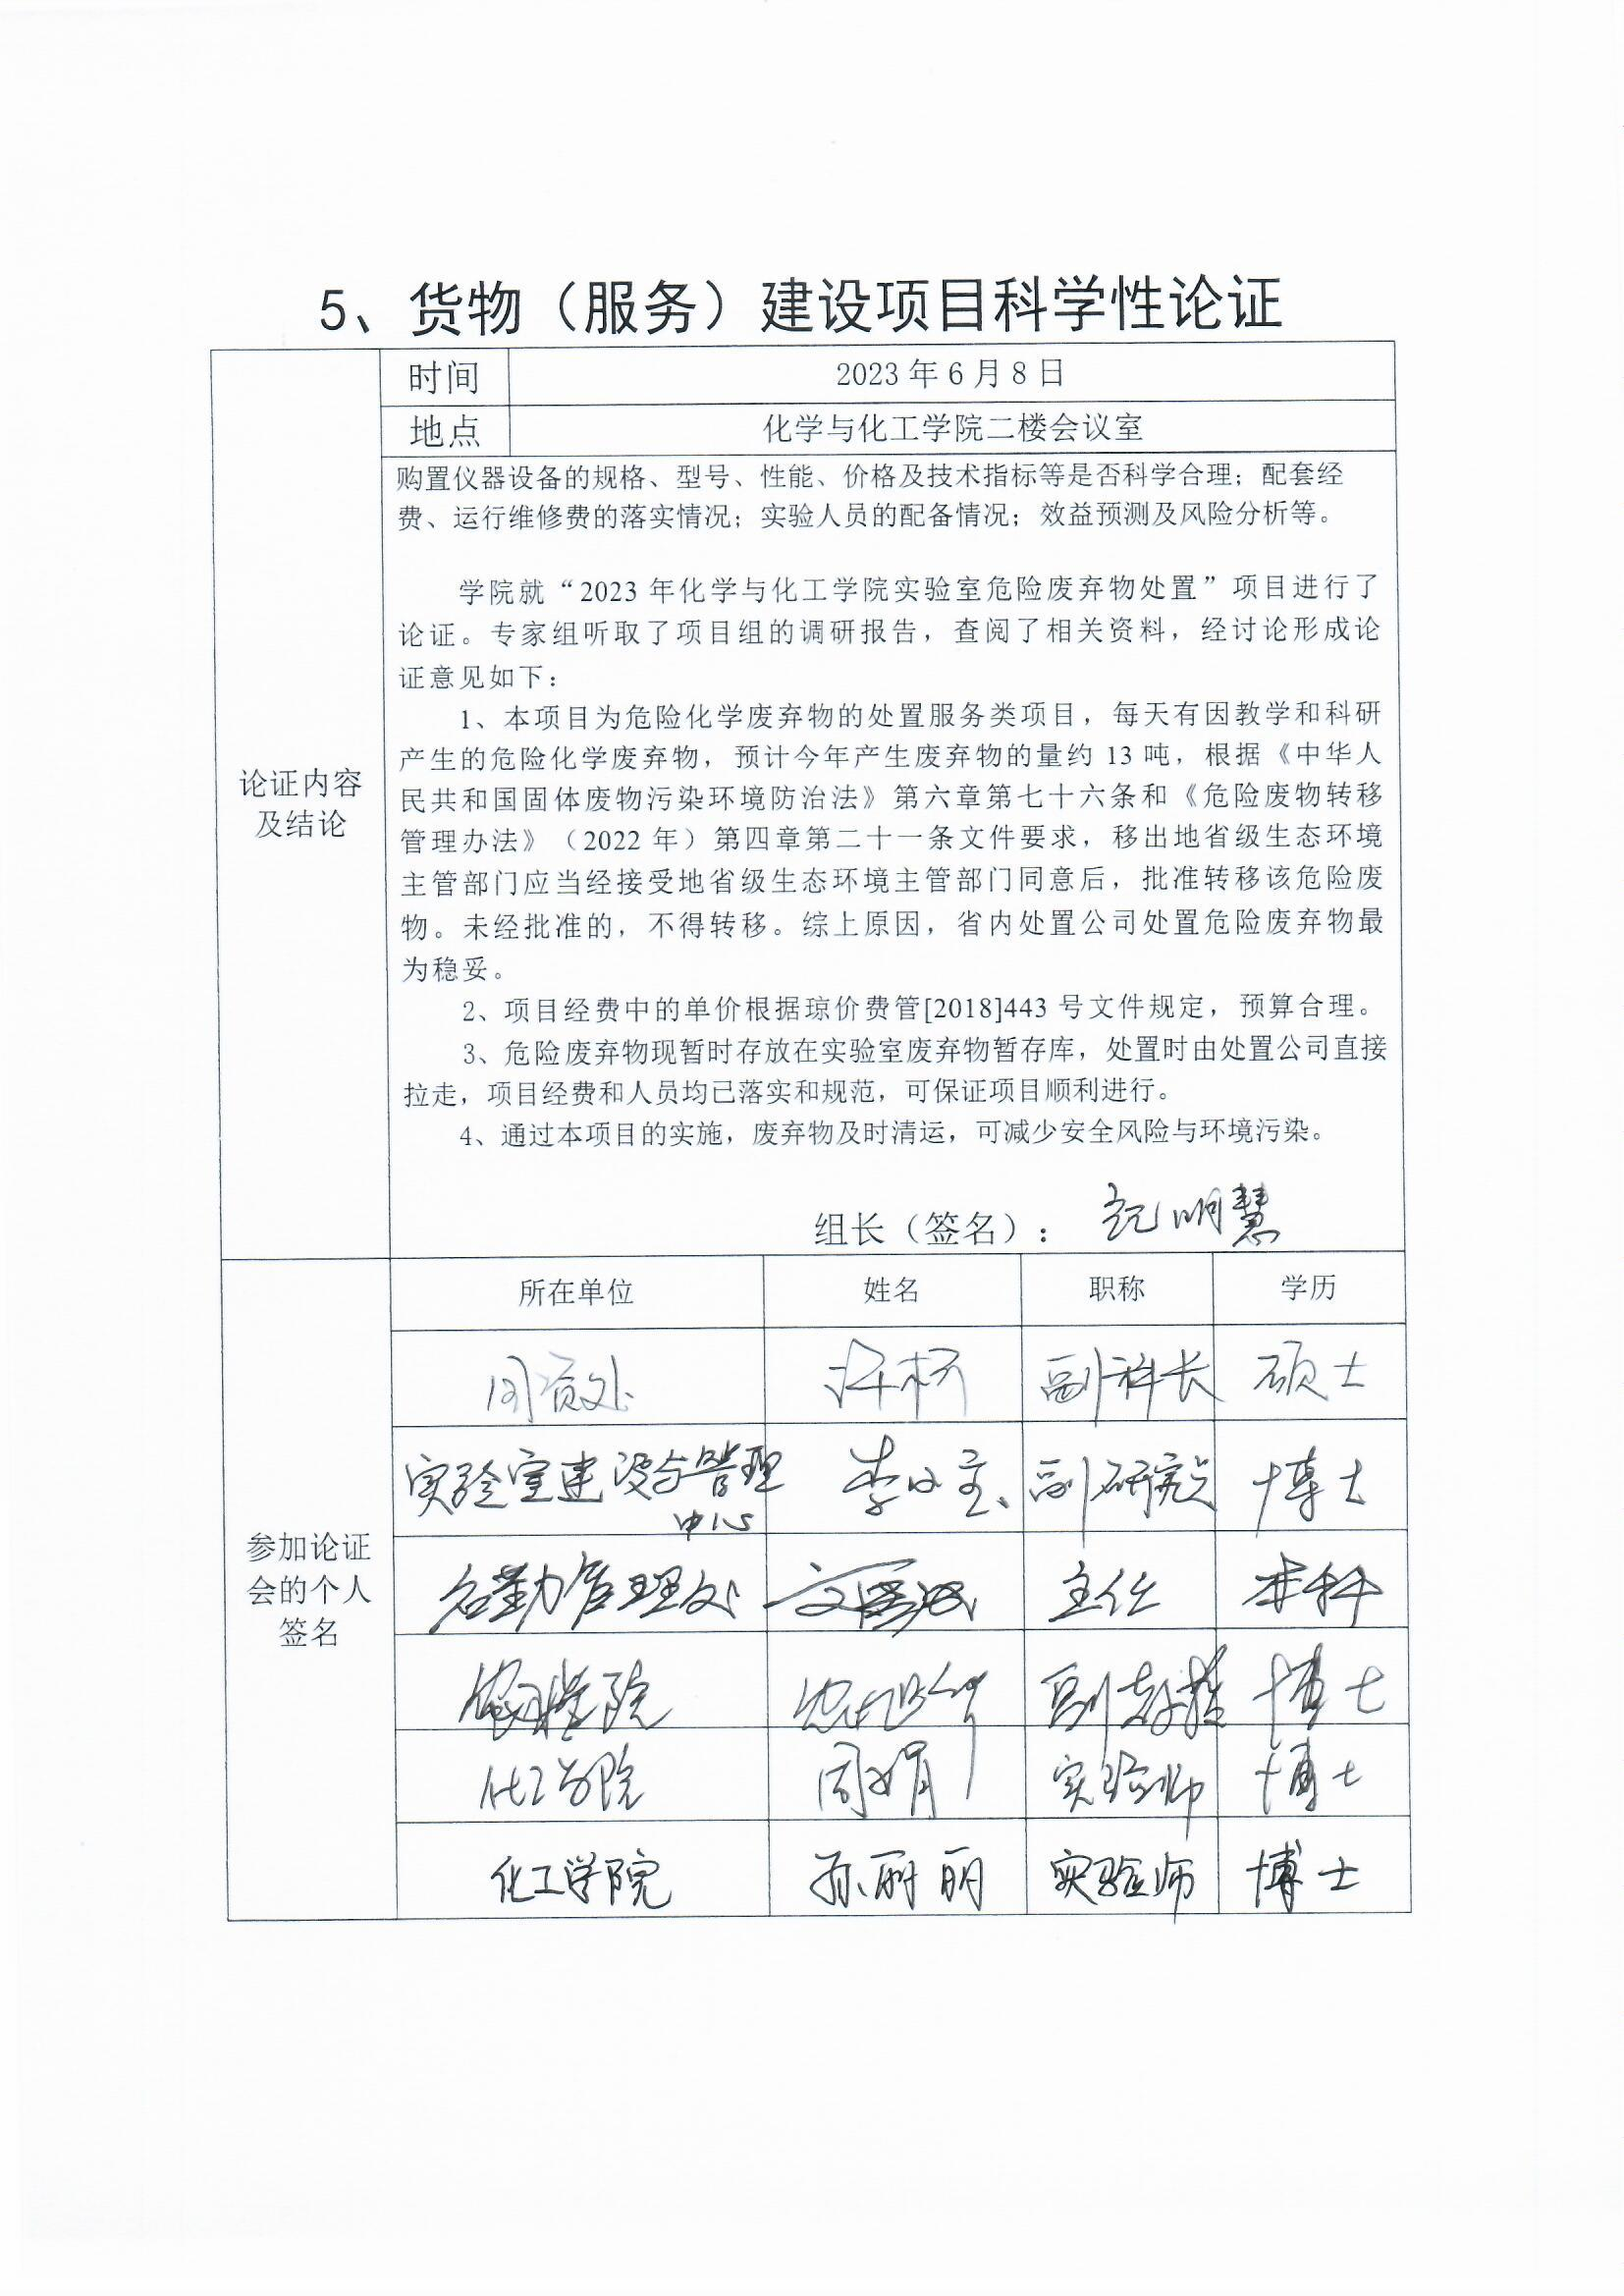 5、货物（服务）建设项目科学性论证
时间 2023年6月8日
地点 化学与化工学院二楼会议室
购置仪器设备的规格、型号、性能、价格及技术指标等是否科学合理；配套经
费、运行维修费的落实情况；实验人员的配备情况；效益预测及风险分析等。
学院就“2023年化学与化工学院实验室危险废弃物处置”项目进行了
论证。专家组听取了项目组的调研报告，查阅了相关资料，经讨论形成论
证意见如下：
1、本项目为危险化学废弃物的处置服务类项目，每天有因教学和科研
产生的危险化学废弃物，预计今年产生废弃物的量约13吨，根据《中华人
民共和国固体废物污染环境防治法》第六章第七十六条和《危险废物转移
管理办法》（2022年）第四章第二十一条文件要求，移出地省级生态环境
主管部门应当经接受地省级生态环境主管部门同意后，批准转移该危险废
物。未经批准的，不得转移。综上原因，省内处置公司处置危险废弃物最
为稳妥。
2、项目经费中的单价根据琼价费管[2018]443号文件规定，预算合理。
3、危险废弃物现暂时存放在实验室废弃物暂存库，处置时由处置公司直接
拉走，项目经费和人员均已落实和规范，可保证项目顺利进行。
4、通过本项目的实施，废弃物及时清运，可减少安全风险与环境污染。
论证内容
及结论
组长（签名）： 明慧
所在单位 姓名 职称 学历
副科长 硕士
实验室建设与管理
中心 李 副研究员 博士
后勤管理处 文 主任 本科
学院 副教授 博士
化工学院 周娟 实验师 博士
化工学院 孙丽丽 实验师 博士
参加论证
会的个人
签名